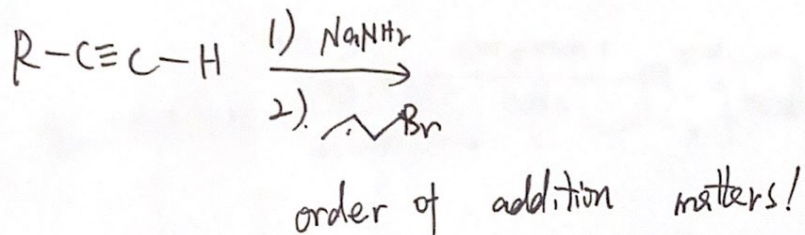 R-C≡C-H
1) NaNH2
2). Br
order of addition matters!